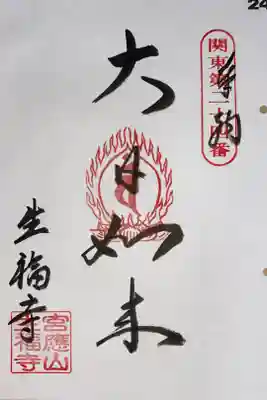 24
関東第二十四番
奉拝
大日如来
生福寺
宮應山
生福寺